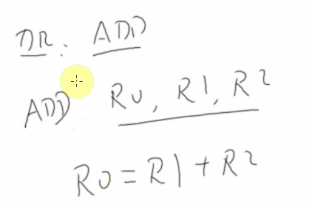 DR: ADD
ADD R0, R1, R2
R0 = R1 + R2